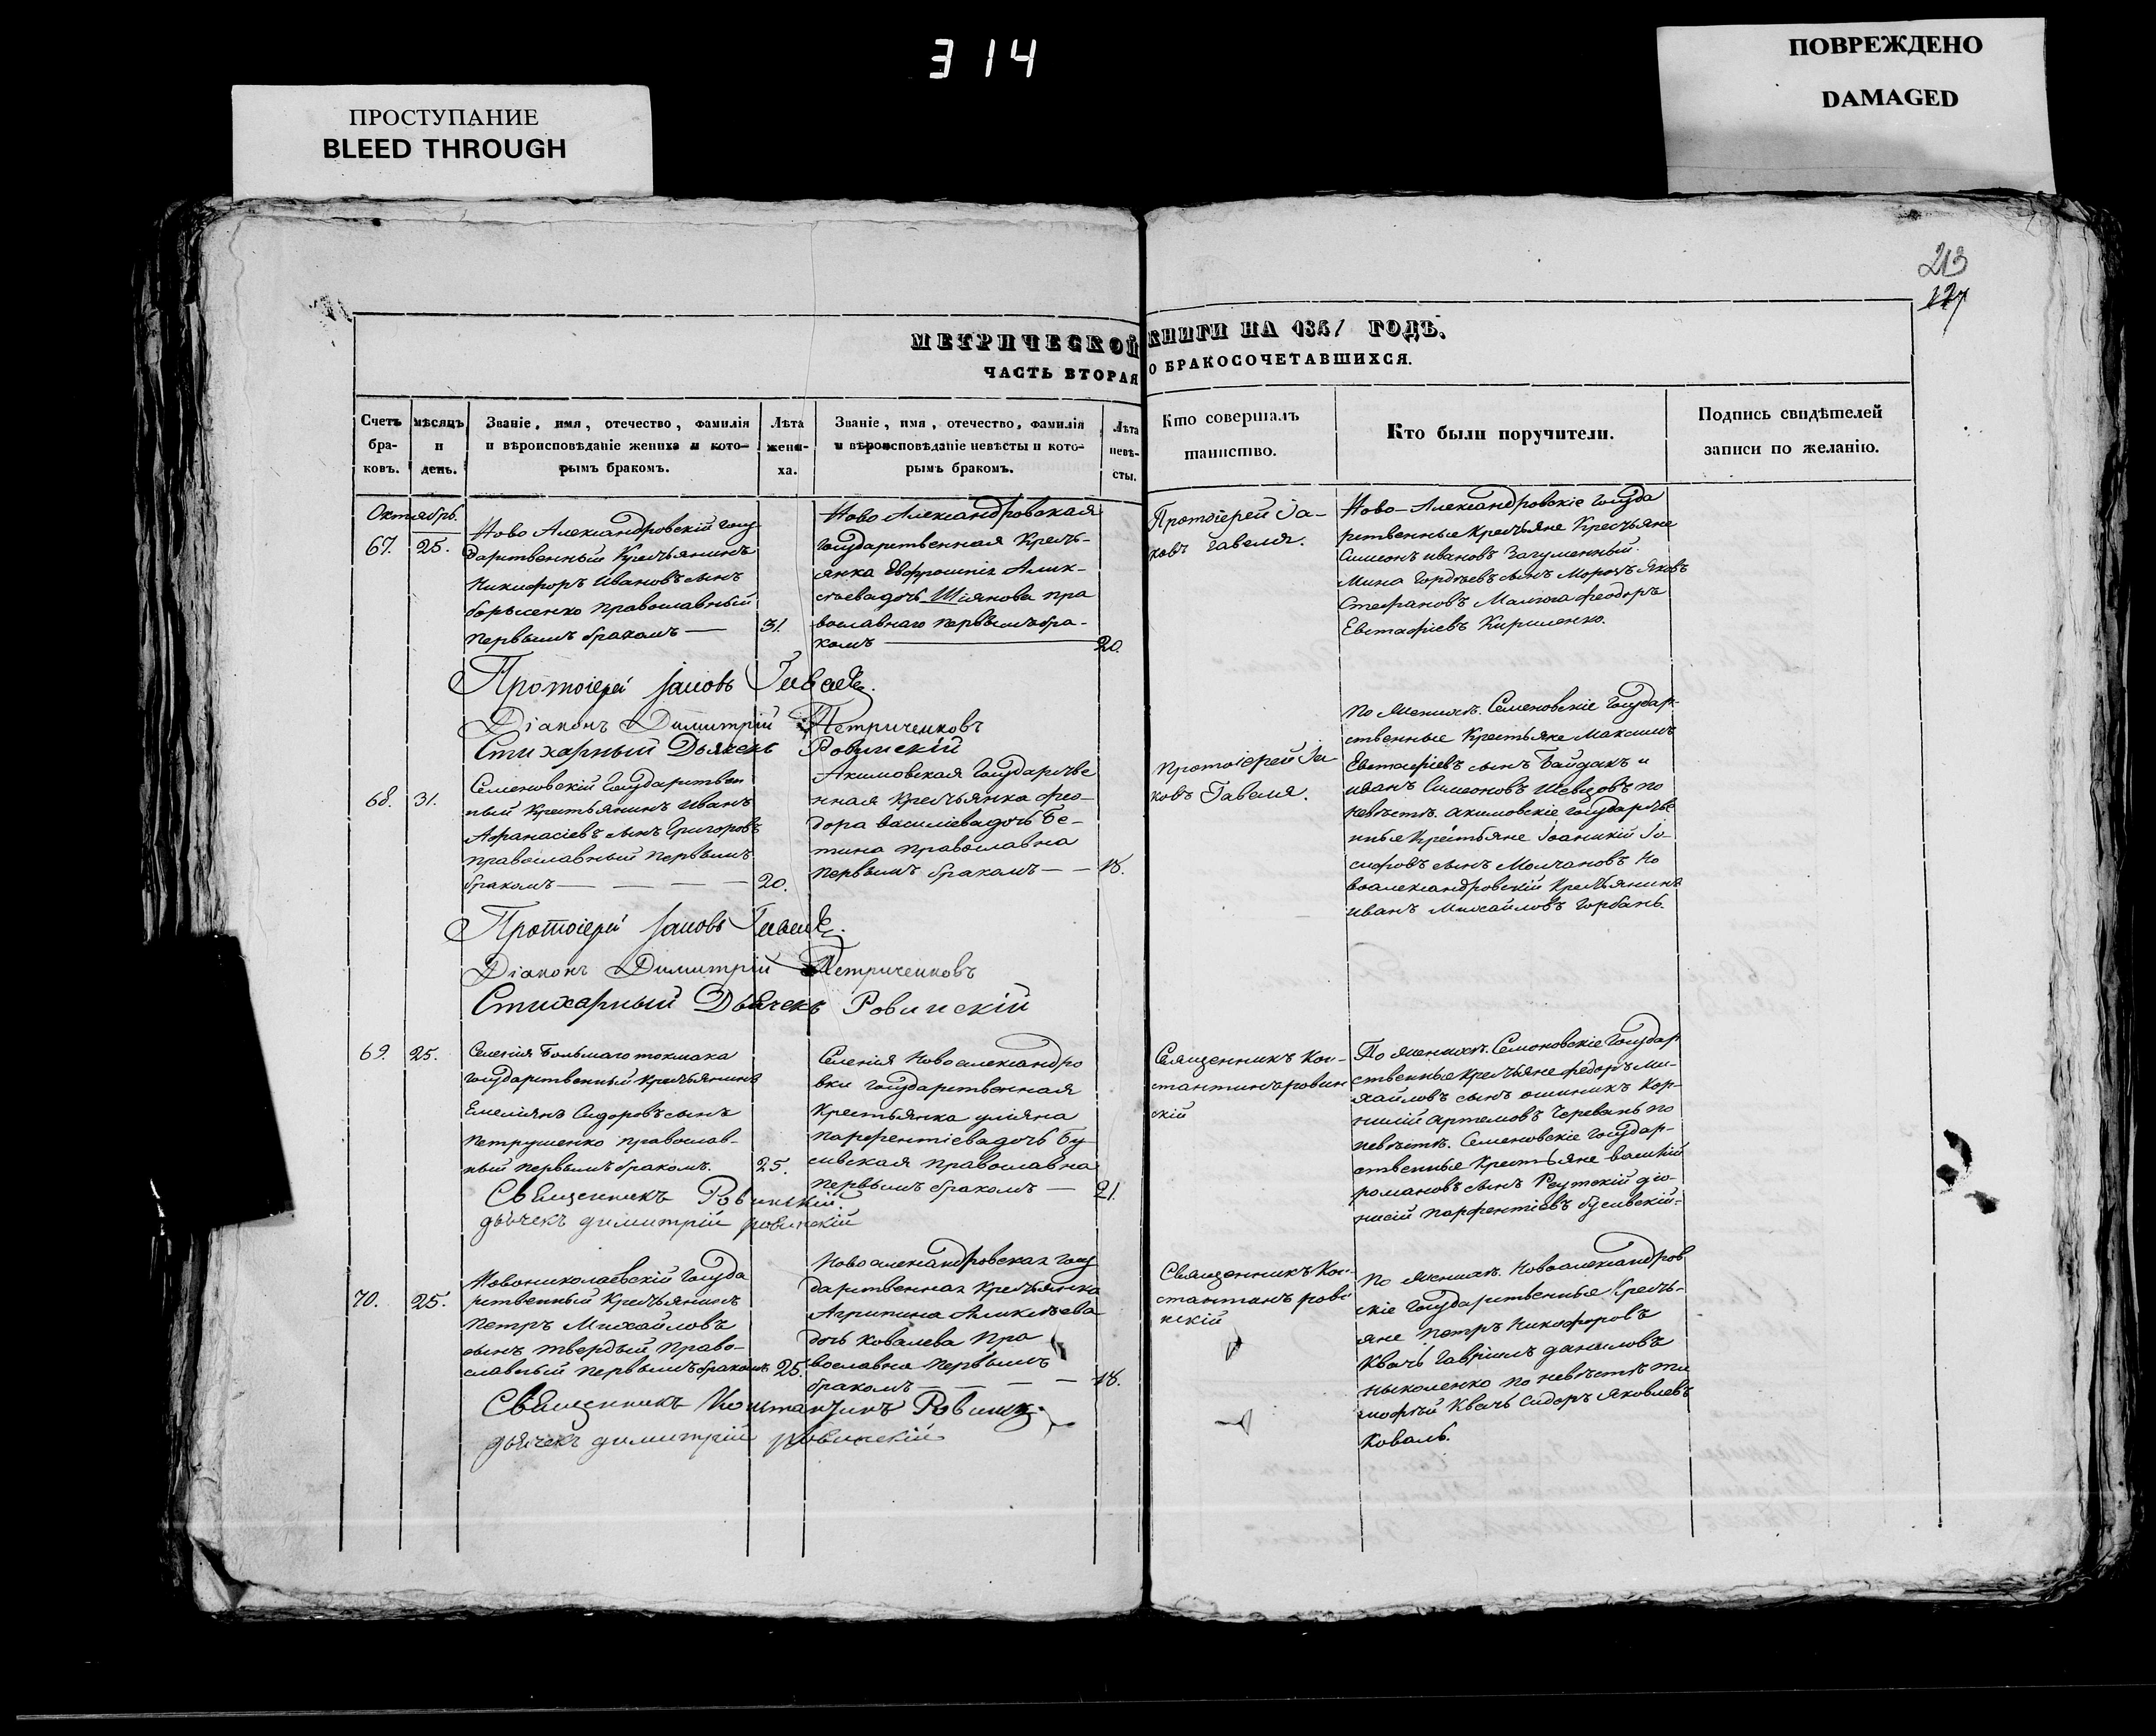 314
ПРОСТУПАНИЕ
BLEED THROUGH
ПОВРЕЖДЕНО
DAMAGED
213
127
МЕТРИЧЕСКОЙ КНИГИ НА 1851 ГОДЪ.
ЧАСТЬ ВТОРАЯ О БРАКОСОЧЕТАВШИХСЯ.
Счетъ
бра-
ковъ.
мѣсяцъ
и
день.
Званіе, имя, отечество, фамилія
и вѣроисповѣданіе жениха и кото-
рымъ бракомъ.
Лѣта
жени-
ха.
Званіе, имя, отечество, фамилія
и вѣроисповѣданіе невѣсты и кото-
рымъ бракомъ.
Лѣта
невѣ-
сты.
Кто совершалъ
таинство.
Кто были поручители.
Подпись свидѣтелей
записи по желанію.
Октябрь.
67.
25.
Ново Александровскій госу
дарственный Крестьянинъ
Никифоръ Ивановъ сынъ
борысенко православный
первымъ бракомъ —
31.
Ново Александровская
государственная Кресть-
янка Евфросинія Алик-
сѣева дочь Шіянова пра
вославнаго первымъ бра-
комъ —
20.
Протоіерей Іа-
ковъ Гавеля.
Ново-Александровскіе госуда
рственные Крестьяне Крестьяне
Симеонъ ивановъ Загуменный.
Мина Гордѣевъ сынъ Морозъ Яковъ
Стефановъ Малюга феодоръ
Евстафіевъ Кириленко.
Протоіерей Іаковъ Гавеля.
Діаконъ Димитрій Петриченковъ
Стихарный Дьячекъ Ровинскій
68.
31.
Семеновскій Государствен
ный Крестьянинъ Иванъ
Афанасіевъ сынъ Григоровъ
православный первымъ
бракомъ — — — —
20.
Акимовская Государстве
нная Крестьянка фео-
дора василіева дочь Бе-
тина православна
первымъ бракомъ — —
18.
Протоіерей Іа
ковъ Гавеля.
По женихѣ. Семеновскіе Государ-
ственные Крестьяне Максимъ
Евстафіевъ сынъ Байдакъ и
иванъ Симеоновъ Шевцовъ по
невѣстѣ. акимовскіе государстве
нные Крестьяне Іоаникій Іо-
сифовъ сынъ Молчановъ Но
воалександровскій Крестьянинъ
иванъ Михайловъ Горбань.
Протоіерей Іаковъ Гавеля.
Діаконъ Димитрій Петриченковъ
Стихарный Дьячекъ Ровинскій
69.
25.
Селенія Большаго токмака
государственный крестьянинъ
Емеліянъ Сидоровъ сынъ
Петрушенко православ-
ный первымъ бракомъ.
25.
Селенія Новоалександро
вки Государственная
Крестьянка уліяна
парфентіева дочь Бу-
сивская православна
первымъ бракомъ —
21.
Священникъ Кон-
стантинъ ровин
скій
По женихѣ. Семоновскіе Государ
ственные Крестьяне федоръ Ми-
хайловъ сынъ ошникъ Кор-
нилій артемовъ Черевань по
невѣстѣ. Семеновскіе государ-
ственные Крестьяне василій
романовъ сынъ Реутскій діо-
нисій парфентіевъ бусивскій.
Священникъ Ровинскій.
дьячекъ димитрій ровинскій
70.
25.
Новониколаевскій Госуда
рственный Крестьянинъ
Петръ Михайловъ
сынъ твердый Право-
славный первымъ бракомъ
25.
Новоалександровская госу
дарственная Крестьянка
Агрипина Аликсѣева
дочь Ковалева Пра
вославна первымъ
бракомъ — — —
18.
Священникъ Кон-
стантинъ рови
нскій
По женихѣ. Новоалександров
скіе Государственные Кресть-
яне Петръ Никифоровъ
Квачь гавріилъ даниловъ
ныколенко по невѣстѣ ти
мофѣй Квачь Сидоръ Яковлевъ
Коваль.
Священникъ Константинъ Ровинск.
дьячекъ димитрій ровинскій